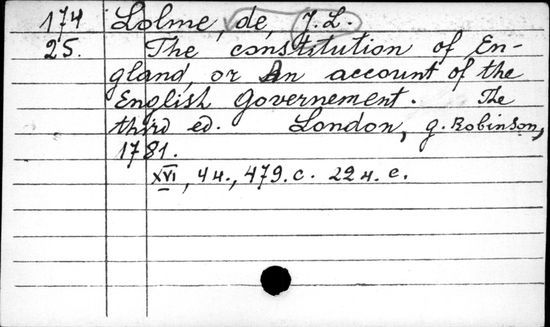 174 Lolme, de, J. L.
25. The constitution of En-
gland, or An account of the
English Governement. The
third ed. London, G. Robinson,
1781.
XVI, 4 н., 479. с. 22 н. с.